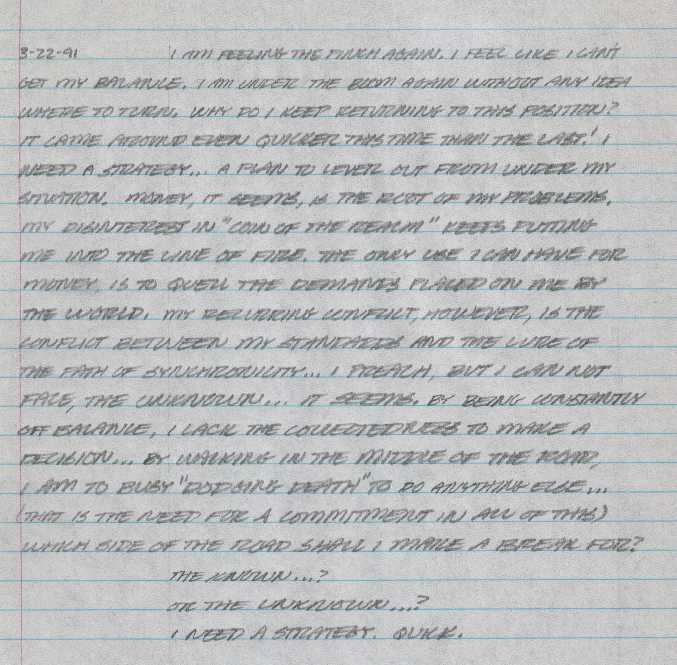 3-22-91 I AM FEELING THE PINCH AGAIN. I FEEL LIKE I CAN'T
GET MY BALANCE. I AM UNDER THE BOOM AGAIN WITHOUT ANY IDEA
WHERE TO TURN. WHY DO I KEEP RETURNING TO THIS POSITION?
IT CAME AROUND EVEN QUICKER THIS TIME THAN THE LAST! I
NEED A STRATEGY... A PLAN TO LEVER OUT FROM UNDER MY
SITUATION. MONEY, IT SEEMS, IS THE ROOT OF MY PROBLEMS.
MY DISINTEREST IN "COIN OF THE REALM" KEEPS PUTTING
ME INTO THE LINE OF FIRE. THE ONLY USE I CAN HAVE FOR
MONEY, IS TO QUELL THE DEMANDS PLACED ON ME BY
THE WORLD. MY RECURRING CONFLICT, HOWEVER, IS THE
CONFLICT BETWEEN MY STANDARDS AND THE LURE OF
THE PATH OF SYNCHRONICITY... I PREACH, BUT I CAN NOT
FACE, THE UNKNOWN... IT SEEMS. BY BEING CONSTANTLY
OFF BALANCE, I LACK THE COLLECTEDNESS TO MAKE A
DECISION... BY WALKING IN THE MIDDLE OF THE ROAD,
I AM TO BUSY "DODGING DEATH" TO DO ANYTHING ELSE...
(THAT IS THE NEED FOR A COMMITMENT IN ALL OF THIS)
WHICH SIDE OF THE ROAD SHALL I MAKE A BREAK FOR?
THE KNOWN...?
OR THE UNKNOWN...?
I NEED A STRATEGY. QUICK.